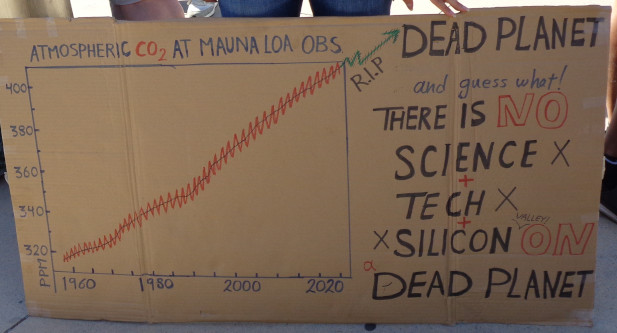 ATMOSPHERIC CO2 AT MAUNA LOA OBS
400
380
360
340
320
PPM
1960 1980 2000 2020
R.I.P
DEAD PLANET
and guess what!
THERE IS NO
SCIENCE X
+
TECH X
+
VALLEY!
X SILICON ON
a
DEAD PLANET